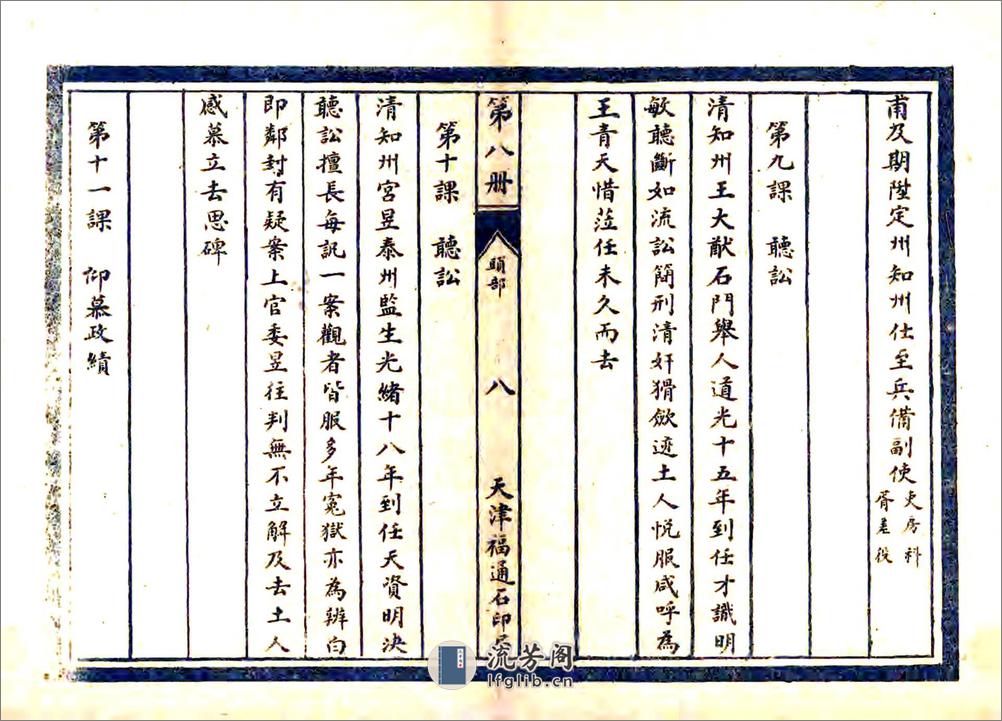 甫及期陞定州知州仕至兵備副使吏房科
胥差役
第九課 聽訟
清知州王大猷石門舉人道光十五年到任才識明
敏聽斷如流訟簡刑清奸猾歛迹土人悦服咸呼為
王青天惜蒞任未久而去
第八册 頭部 八 天津福通石印局
第十課 聽訟
清知州宮昱泰州監生光緒十八年到任天資明決
聽訟擅長每訊一案觀者皆服多年寃獄亦為辨白
即鄰封有疑案上官委昱往判無不立解及去土人
感慕立去思碑
第十一課 仰慕政績
流芳阁
lfglib.cn